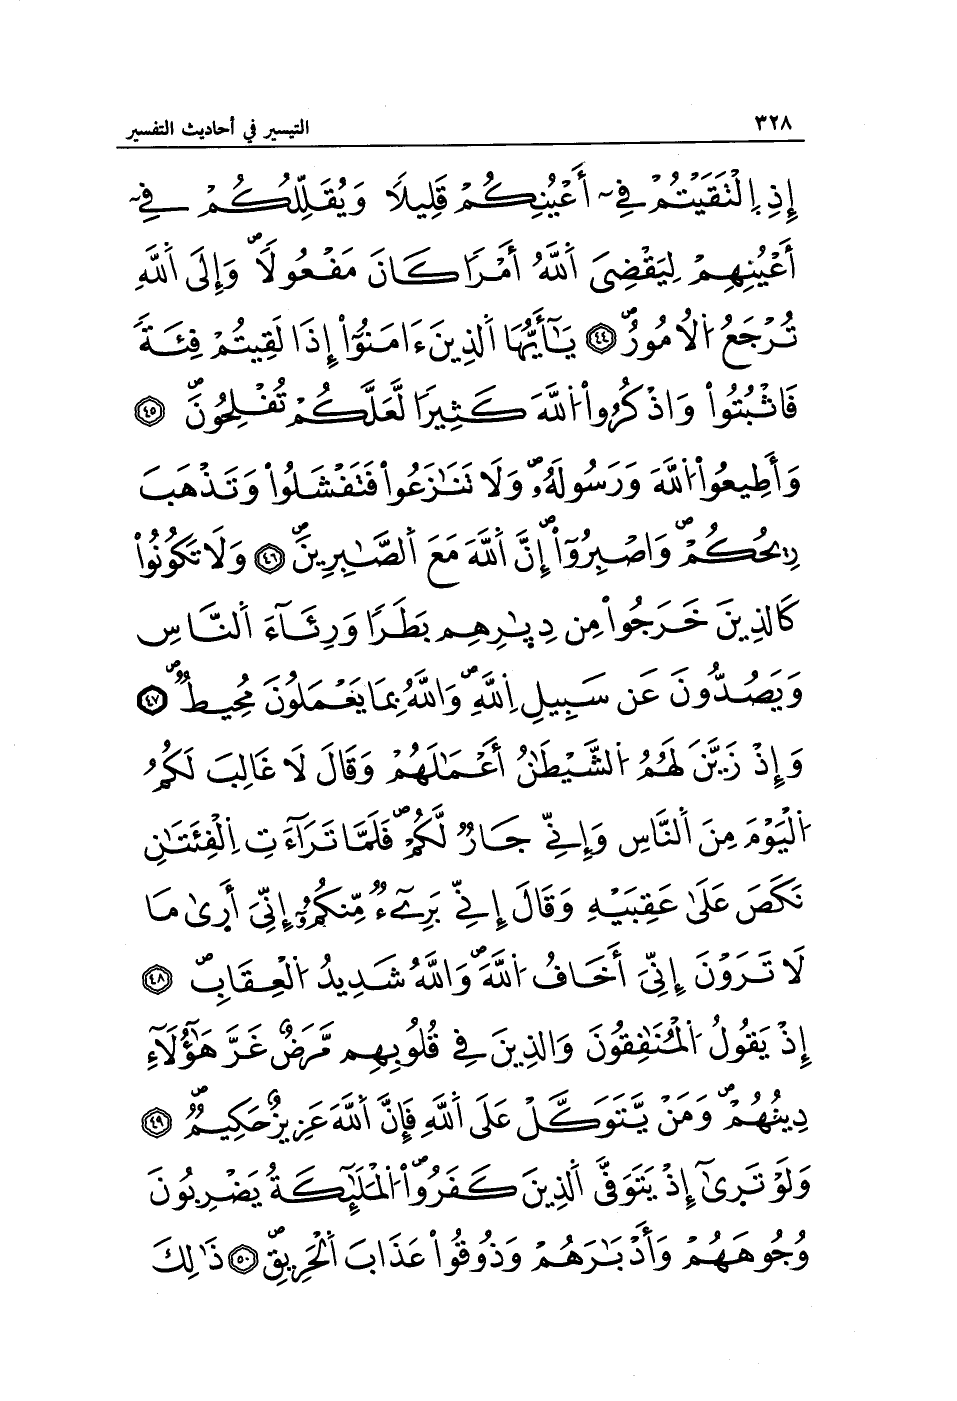 ٣٢٨ التيسير في أحاديث التفسير
إِذِ اِلْتَقَيْتُمْ فِے أَعْيُنِكُمْ قَلِيلًا وَيُقَلِّلُكُمْ فِے
أَعْيُنِهِمْ لِيَقْضِيَ اَللَّهُ أَمْرًا كَانَ مَفْعُولًا وَإِلَى اَللَّهِ
تُرْجَعُ اُلْأُمُورُ ٤٤ يَٰٓأَيُّهَا اَلذِينَ ءَامَنُوٓاْ إِذَا لَقِيتُمْ فِئَةً
فَاثْبُتُواْ وَاذْكُرُواْ اُللَّهَ كَثِيرًا لَّعَلَّكُمْ تُفْلِحُونَ ٤٥
وَأَطِيعُواْ اُللَّهَ وَرَسُولَهُۥ وَلَا تَنَٰزَعُواْ فَتَفْشَلُواْ وَتَذْهَبَ
رِيحُكُمْ وَاصْبِرُوٓاْ إِنَّ اَللَّهَ مَعَ اَلصَّٰبِرِينَ ٤٦ وَلَا تَكُونُواْ
كَالذِينَ خَرَجُواْ مِن دِيٰرِهِم بَطَرًا وَرِئَآءَ اَلنَّاسِ
وَيَصُدُّونَ عَن سَبِيلِ اِللَّهِ وَاللَّهُ بِمَا يَعْمَلُونَ مُحِيطٌ ٤٧
وَإِذْ زَيَّنَ لَهُمُ اُلشَّيْطَٰنُ أَعْمَٰلَهُمْ وَقَالَ لَا غَالِبَ لَكُمُ
اُلْيَوْمَ مِنَ اَلنَّاسِ وَإِنِّے جَارٌ لَّكُمْ فَلَمَّا تَرَآءَتِ اِلْفِئَتَٰنِ
نَكَصَ عَلَىٰ عَقِبَيْهِ وَقَالَ إِنِّے بَرِےٓءٌ مِّنكُمُۥٓ إِنِّيَ أَرٜىٰ مَا
لَا تَرَوْنَ إِنِّيَ أَخَافُ اُللَّهَ وَاللَّهُ شَدِيدُ اُلْعِقَابِ ٤٨
إِذْ يَقُولُ اُلْمُنَٰفِقُونَ وَالذِينَ فِے قُلُوبِهِم مَّرَضٌ غَرَّ هَٰٓؤُلَآءِ
دِينُهُمْ وَمَنْ يَّتَوَكَّلْ عَلَى اَللَّهِ فَإِنَّ اَللَّهَ عَزِيزٌ حَكِيمٌ ٤٩
وَلَوْ تَرٜىٰٓ إِذْ يَتَوَفَّى اَلذِينَ كَفَرُواْ اُلْمَلَٰٓئِكَةُ يَضْرِبُونَ
وُجُوهَهُمْ وَأَدْبَٰرَهُمْ وَذُوقُواْ عَذَابَ اَلْحَرِيقِ ٥٠ ذَٰلِكَ